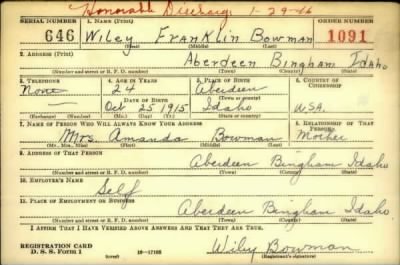 Honorable Discharge 1-29-46
SERIAL NUMBER 1. NAME (Print) ORDER NUMBER
646 Wiley Franklin Bowman 1091
(First) (Middle) (Last)
2. ADDRESS (Print)
Aberdeen Bingham Idaho
(Number and street or R. F. D. number) (Town) (County) (State)
3. TELEPHONE 4. AGE IN YEARS 5. PLACE OF BIRTH 6. COUNTRY OF CITIZENSHIP
None 24 Aberdeen
DATE OF BIRTH (Town or county)
Oct 25 1915 Idaho USA.
(Exchange) (Number) (Mo.) (Day) (Yr.) (State or country)
7. NAME OF PERSON WHO WILL ALWAYS KNOW YOUR ADDRESS 8. RELATIONSHIP OF THAT PERSON
Mrs. Amanda Bowman Mother
(Mr., Mrs., Miss) (First) (Middle) (Last)
9. ADDRESS OF THAT PERSON
Aberdeen Bingham Idaho
(Number and street or R. F. D. number) (Town) (County) (State)
10. EMPLOYER'S NAME
Self
11. PLACE OF EMPLOYMENT OR BUSINESS
Aberdeen Bingham Idaho
(Number and street or R. F. D. number) (Town) (County) (State)
I AFFIRM THAT I HAVE VERIFIED ABOVE ANSWERS AND THAT THEY ARE TRUE.
REGISTRATION CARD Wiley Bowman
D. S. S. Form 1 16-17105 (Registrant's signature)
(over)